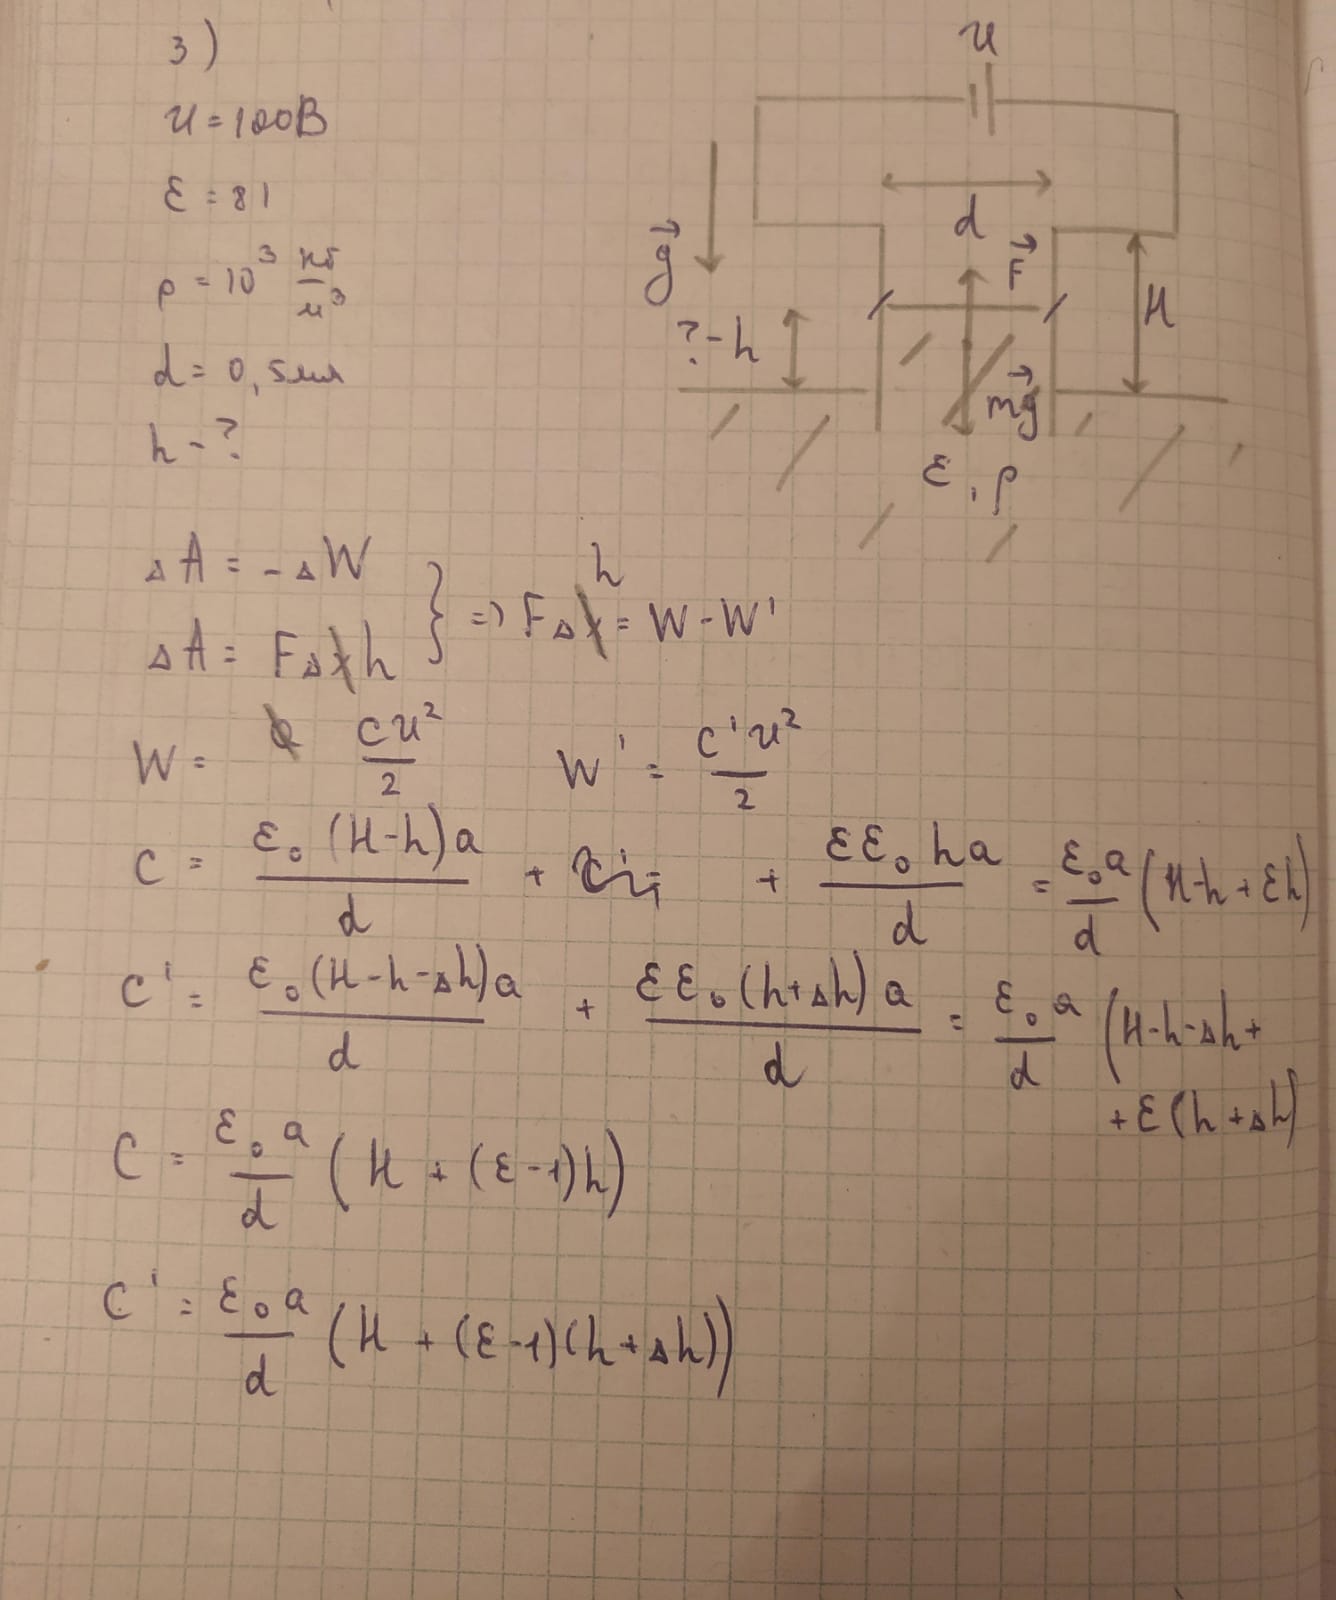 3)
U = 100В
ε = 81
ρ = 10³ кг/м³
d = 0,5мм
h - ?
U
d
g⃗
F⃗
H
? - h
mg⃗
ε, ρ
ΔA = -ΔW
ΔA = FΔh
} => FΔh = W - W'
W = CU²/2
W' = C'U²/2
C = ε₀(H-h)a/d + + εε₀ha/d = ε₀a/d (H-h+εh)
C' = ε₀(H-h-Δh)a/d + εε₀(h+Δh)a/d = ε₀a/d (H-h-Δh+
+ε(h+Δh)
C = ε₀a/d (H + (ε-1)h)
C' = ε₀a/d (H + (ε-1)(h+Δh))